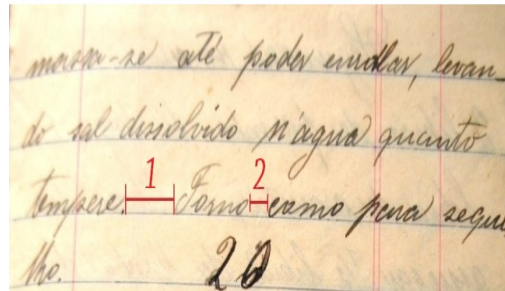 massa-se até poder enrollar, levan
do sal dissolvido n'agua quanto
1 2
tempere. Forno como para sequi
lho.
20